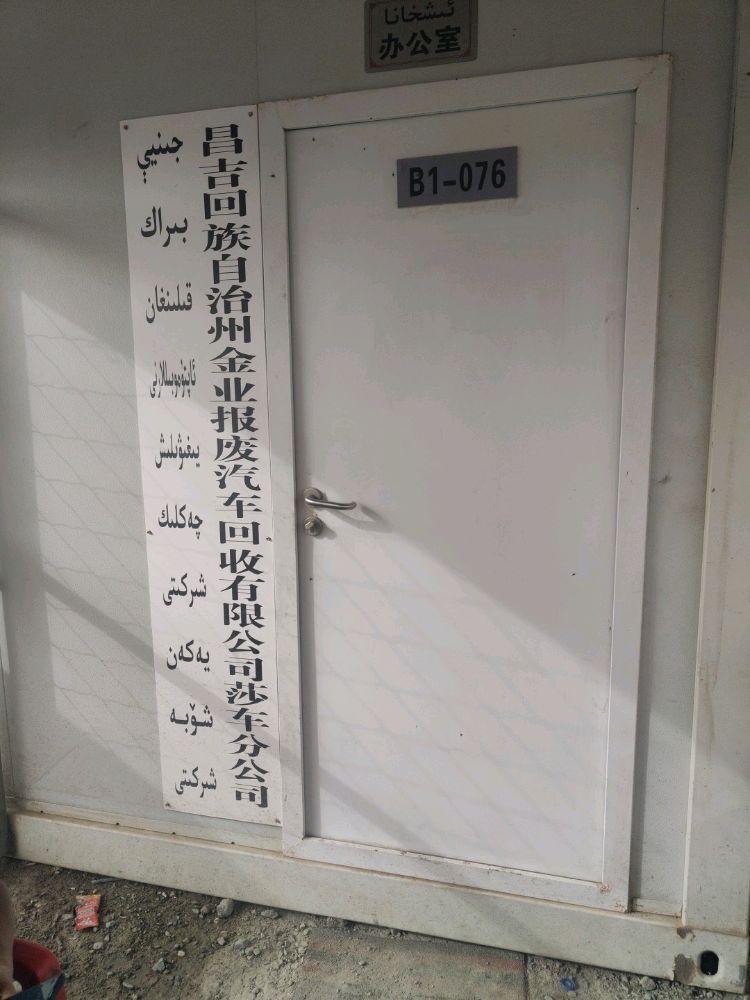 ئىشخانا
办公室
B1-076
جىنيېي
بىراك
قىلىنغان
ئاپتوموبىللارنى
يىغىۋېلىش
چەكلىك
شىركىتى
يەكەن
شۆبە
شىركىتى
昌吉回族自治州金业报废汽车回收有限公司莎车分公司